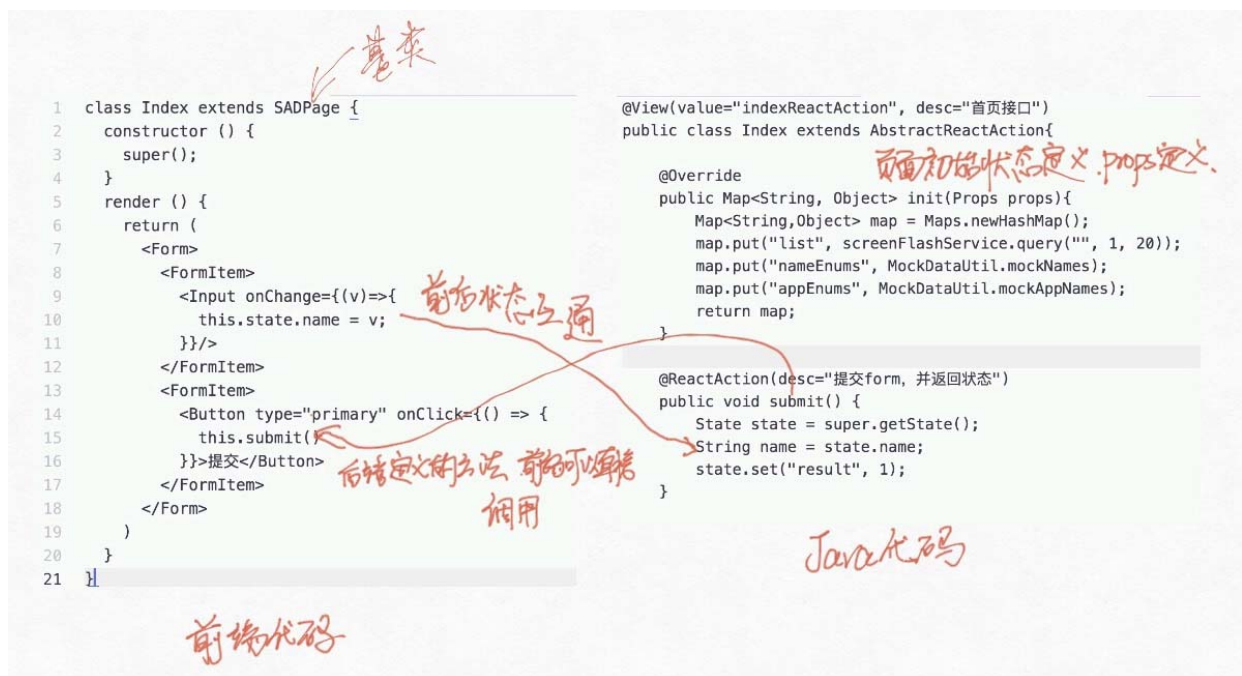 基类
1 class Index extends SADPage {
2 constructor () {
3 super();
4 }
5 render () {
6 return (
7 <Form>
8 <FormItem>
9 <Input onChange={(v)=>{
10 this.state.name = v;
11 }}/>
12 </FormItem>
13 <FormItem>
14 <Button type="primary" onClick={() => {
15 this.submit()
16 }}>提交</Button>
17 </FormItem>
18 </Form>
19 )
20 }
21 }
前后状态互通
后端定义的方法,前端可以直接
调用
前端代码
@View(value="indexReactAction", desc="首页接口")
public class Index extends AbstractReactAction{
页面初始状态定义.props定义.
@Override
public Map<String, Object> init(Props props){
Map<String,Object> map = Maps.newHashMap();
map.put("list", screenFlashService.query("", 1, 20));
map.put("nameEnums", MockDataUtil.mockNames);
map.put("appEnums", MockDataUtil.mockAppNames);
return map;
}
@ReactAction(desc="提交form，并返回状态")
public void submit() {
State state = super.getState();
String name = state.name;
state.set("result", 1);
}
Java代码